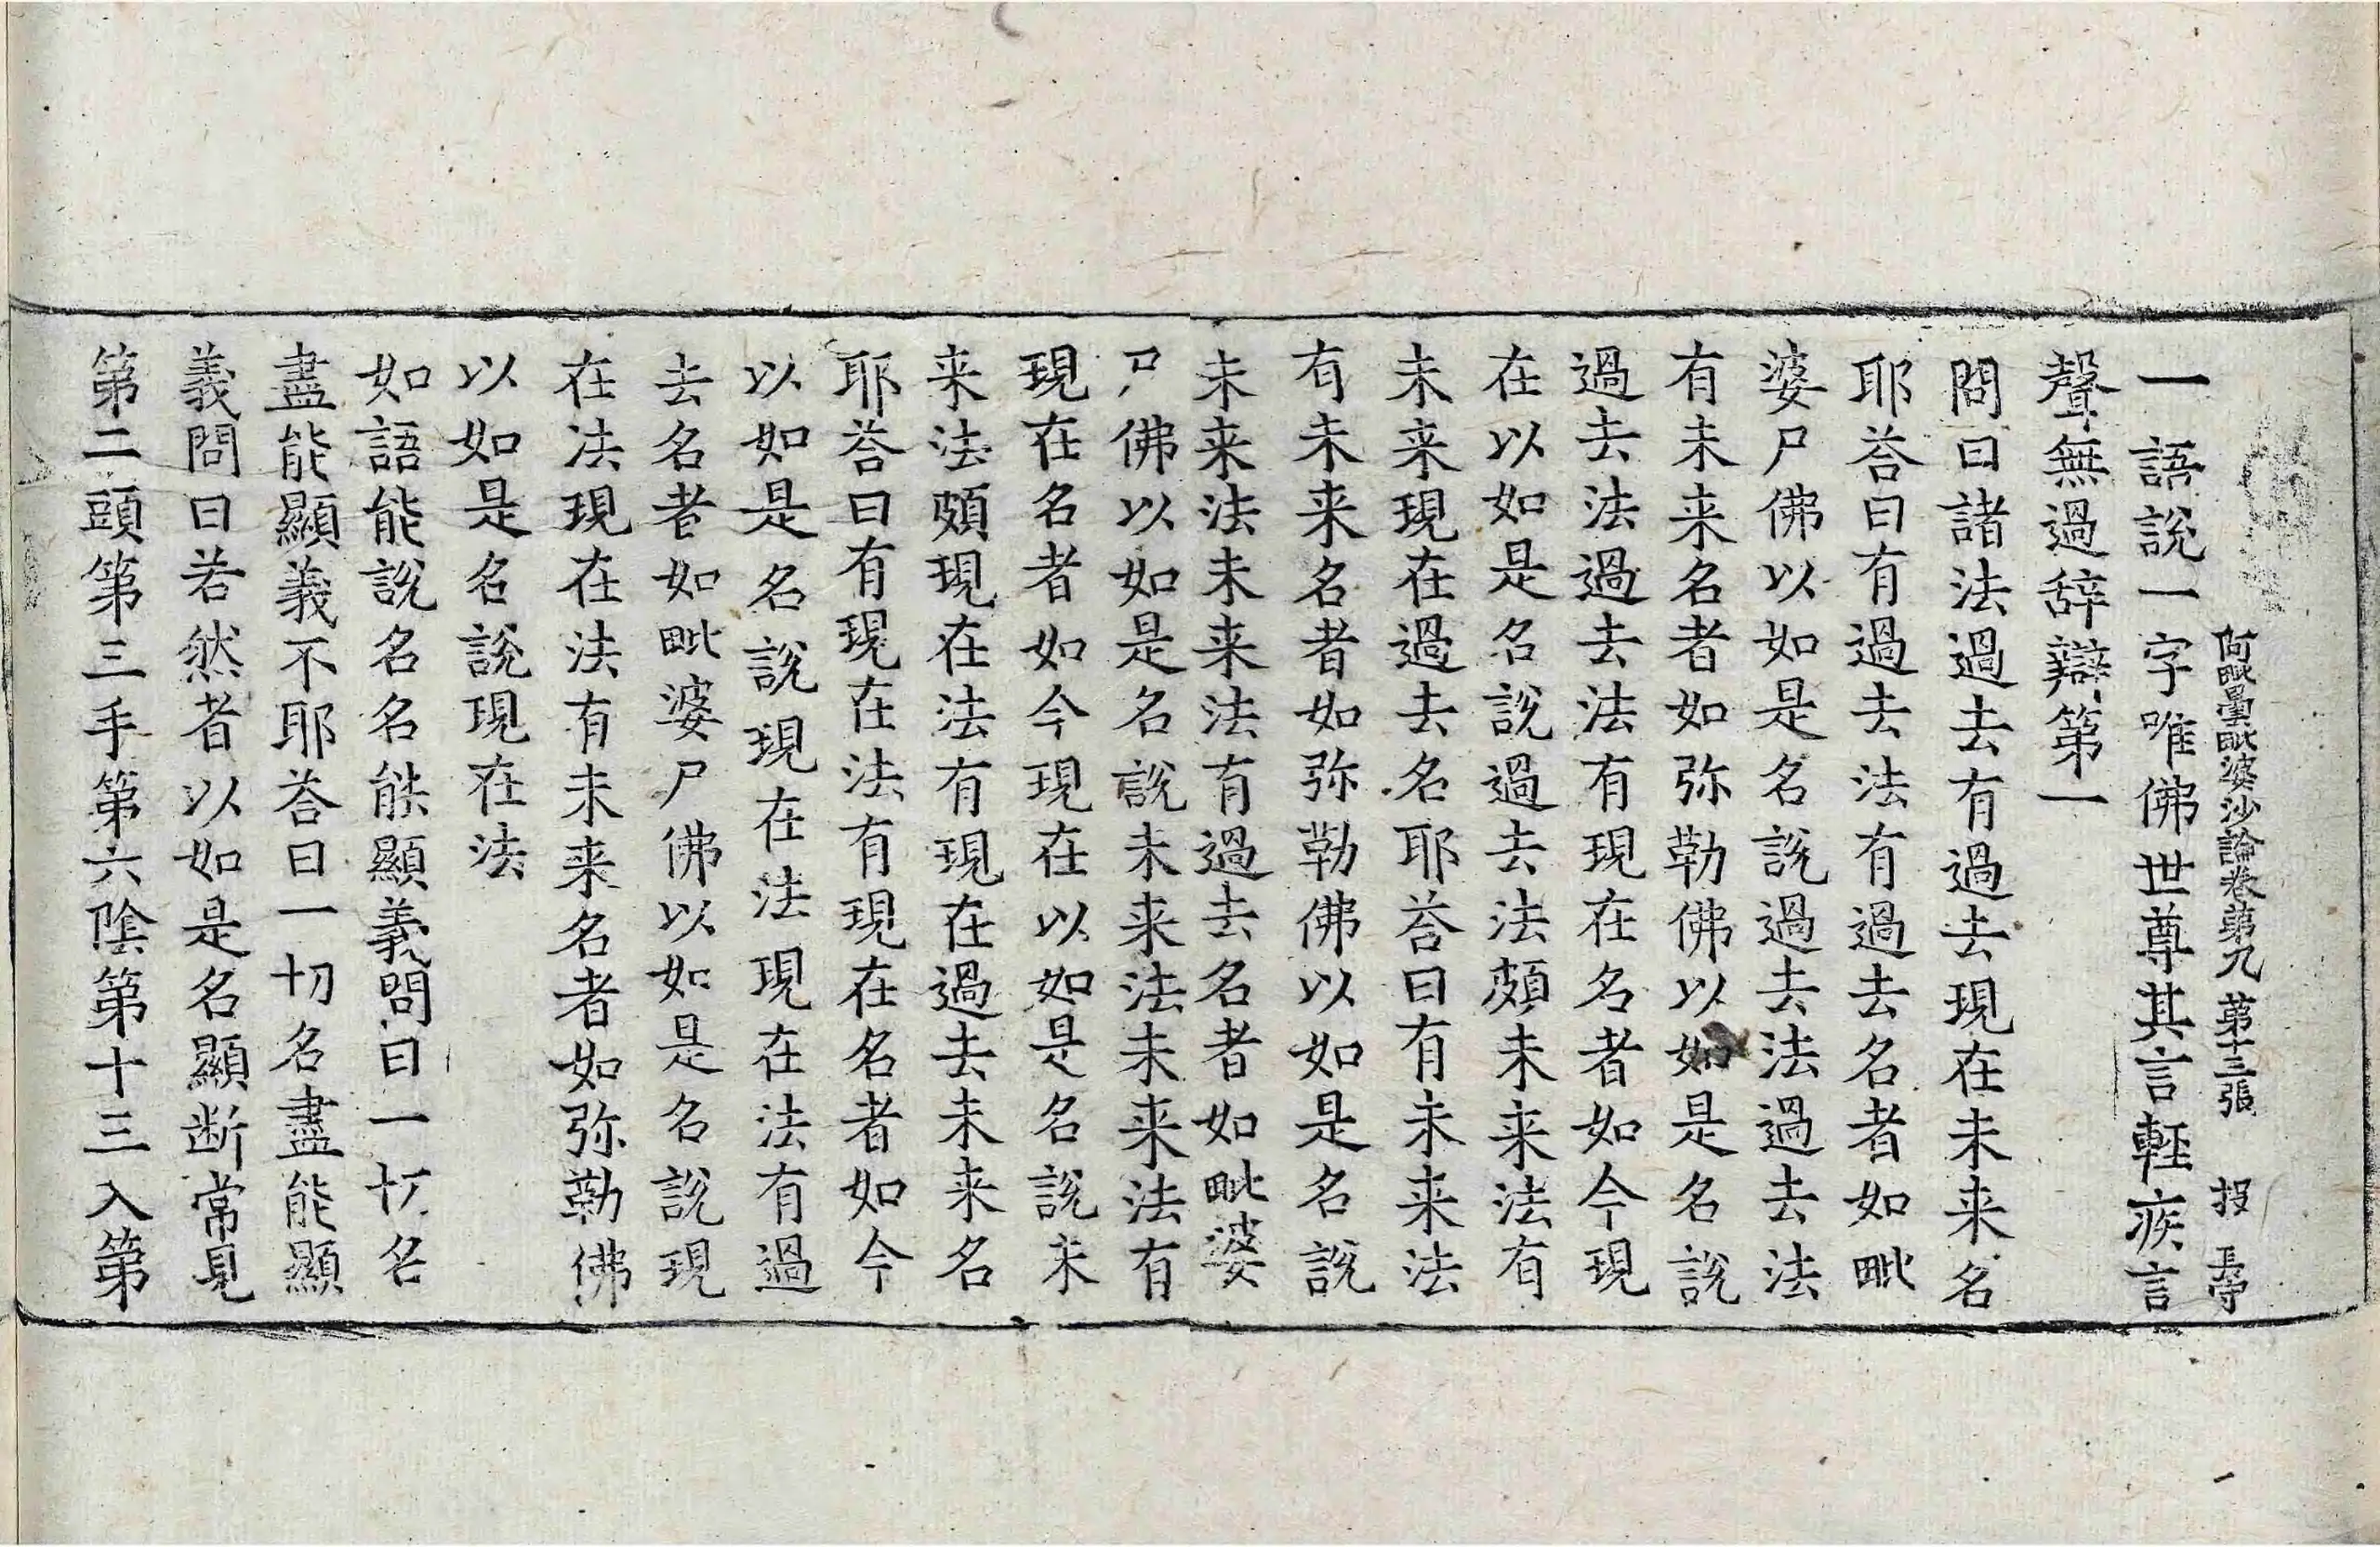 阿毗曇毗婆沙論卷第九 第十三張 投
一語說一字唯佛世尊其言輕疾言
聲無過辞辯第一
問曰諸法過去有過去現在未来名
耶荅曰有過去法有過去名者如毗
婆尸佛以如是名說過去法過去法
有未来名者如弥勒佛以如是名說
過去法過去法有現在名者如今現
在以如是名說過去法頗未来法有
未来現在過去名耶荅曰有未来法
有未来名者如弥勒佛以如是名說
未来法未来法有過去名者如毗婆
尸佛以如是名說未来法未来法有
現在名者如今現在以如是名說未
来法頗現在法有現在過去未来名
耶荅曰有現在法有現在名者如今
以如是名說現在法現在法有過
去名者如毗婆尸佛以如是名說現
在法現在法有未来名者如弥勒佛
以如是名說現在法
如語能說名名能顯義問曰一切名
盡能顯義不耶荅曰一切名盡能顯
義問曰若然者以如是名顯断常見
第二頭第三手第六陰第十三入第